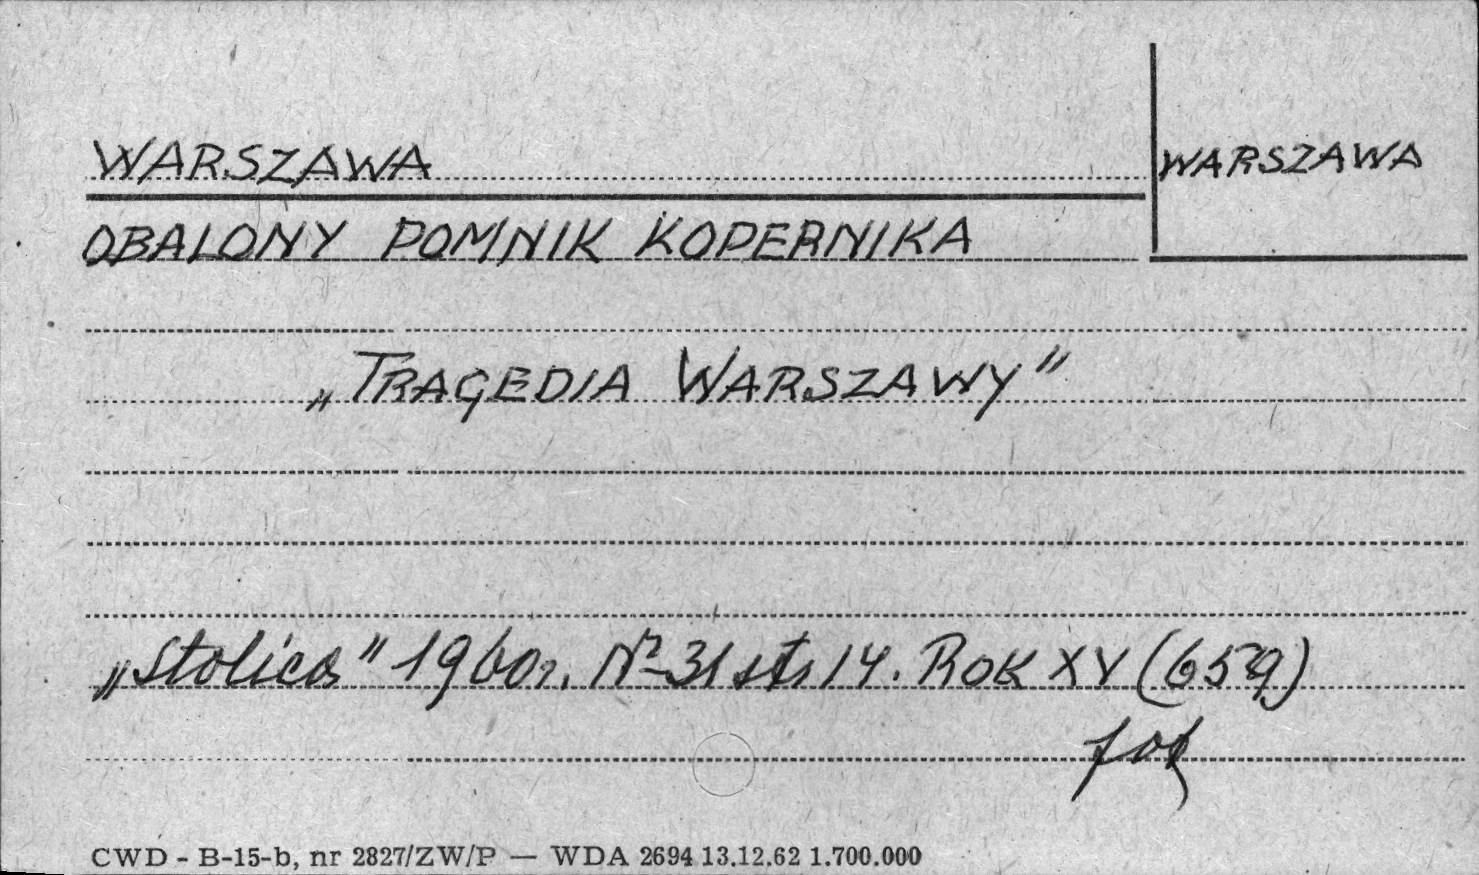 WARSZAWA
WARSZAWA
OBALONY POMNIK KOPERNIKA
„TRAGEDIA WARSZAWY”
„Stolica” 1960r. Nr 31 str 14. ROK XV (659)
fot
CWD - B-15-b, nr 2827/ZW/P — WDA 2694 13.12.62 1.700.000